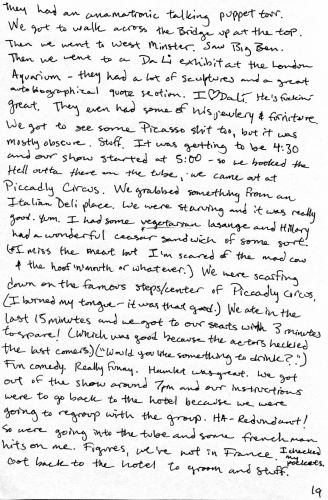 they had an anamatronic talking puppet tour.
We got to walk across the Bridge up at the top.
Then we went to West Minster. Saw Big Ben.
Then we went to a Dali exhibit at the London
Aquarium - they had a lot of sculptures and a great
autobiographical quote section. I ♡ Dali. He's fuckin'
great. They even had some of his jewlery & furniture.
We got to see some Picasso shit too, but it was
mostly obscure. Stuff. It was getting to be 4:30
and our show started at 5:00 - so we booked the
Hell outta there on the tube, we came out at
Piccadly Circus. We grabbed something from an
Italian Deli place. We were starving and it was really
good. Yum. I had some vegetarian lasange and Hillary
had a wonderful ceasar sandwich of some sort.
(I miss the meat but I'm scared of the mad cow
& the hoof in mouth or whatever.) We were scarfing
down on the famous steps/center of Piccadly Circus.
(I burned my tongue - it was that good.) We ate in the
last 15 minutes and we got to our seats with 3 minutes
to spare! (Which was good because the actors heckled
the last comers) ("Would you like something to drink?")
Fun comedy. Really funny. Hamlet was great. We got
out of the show around 7pm and our instructions
were to go back to the hotel because we were
going to regroup with the group. HA - Redundant!
So were going into the tube and some french man
hits on me. Figures, we're not in France. I checked my pockets.
Got back to the hotel to groom and stuff.
19